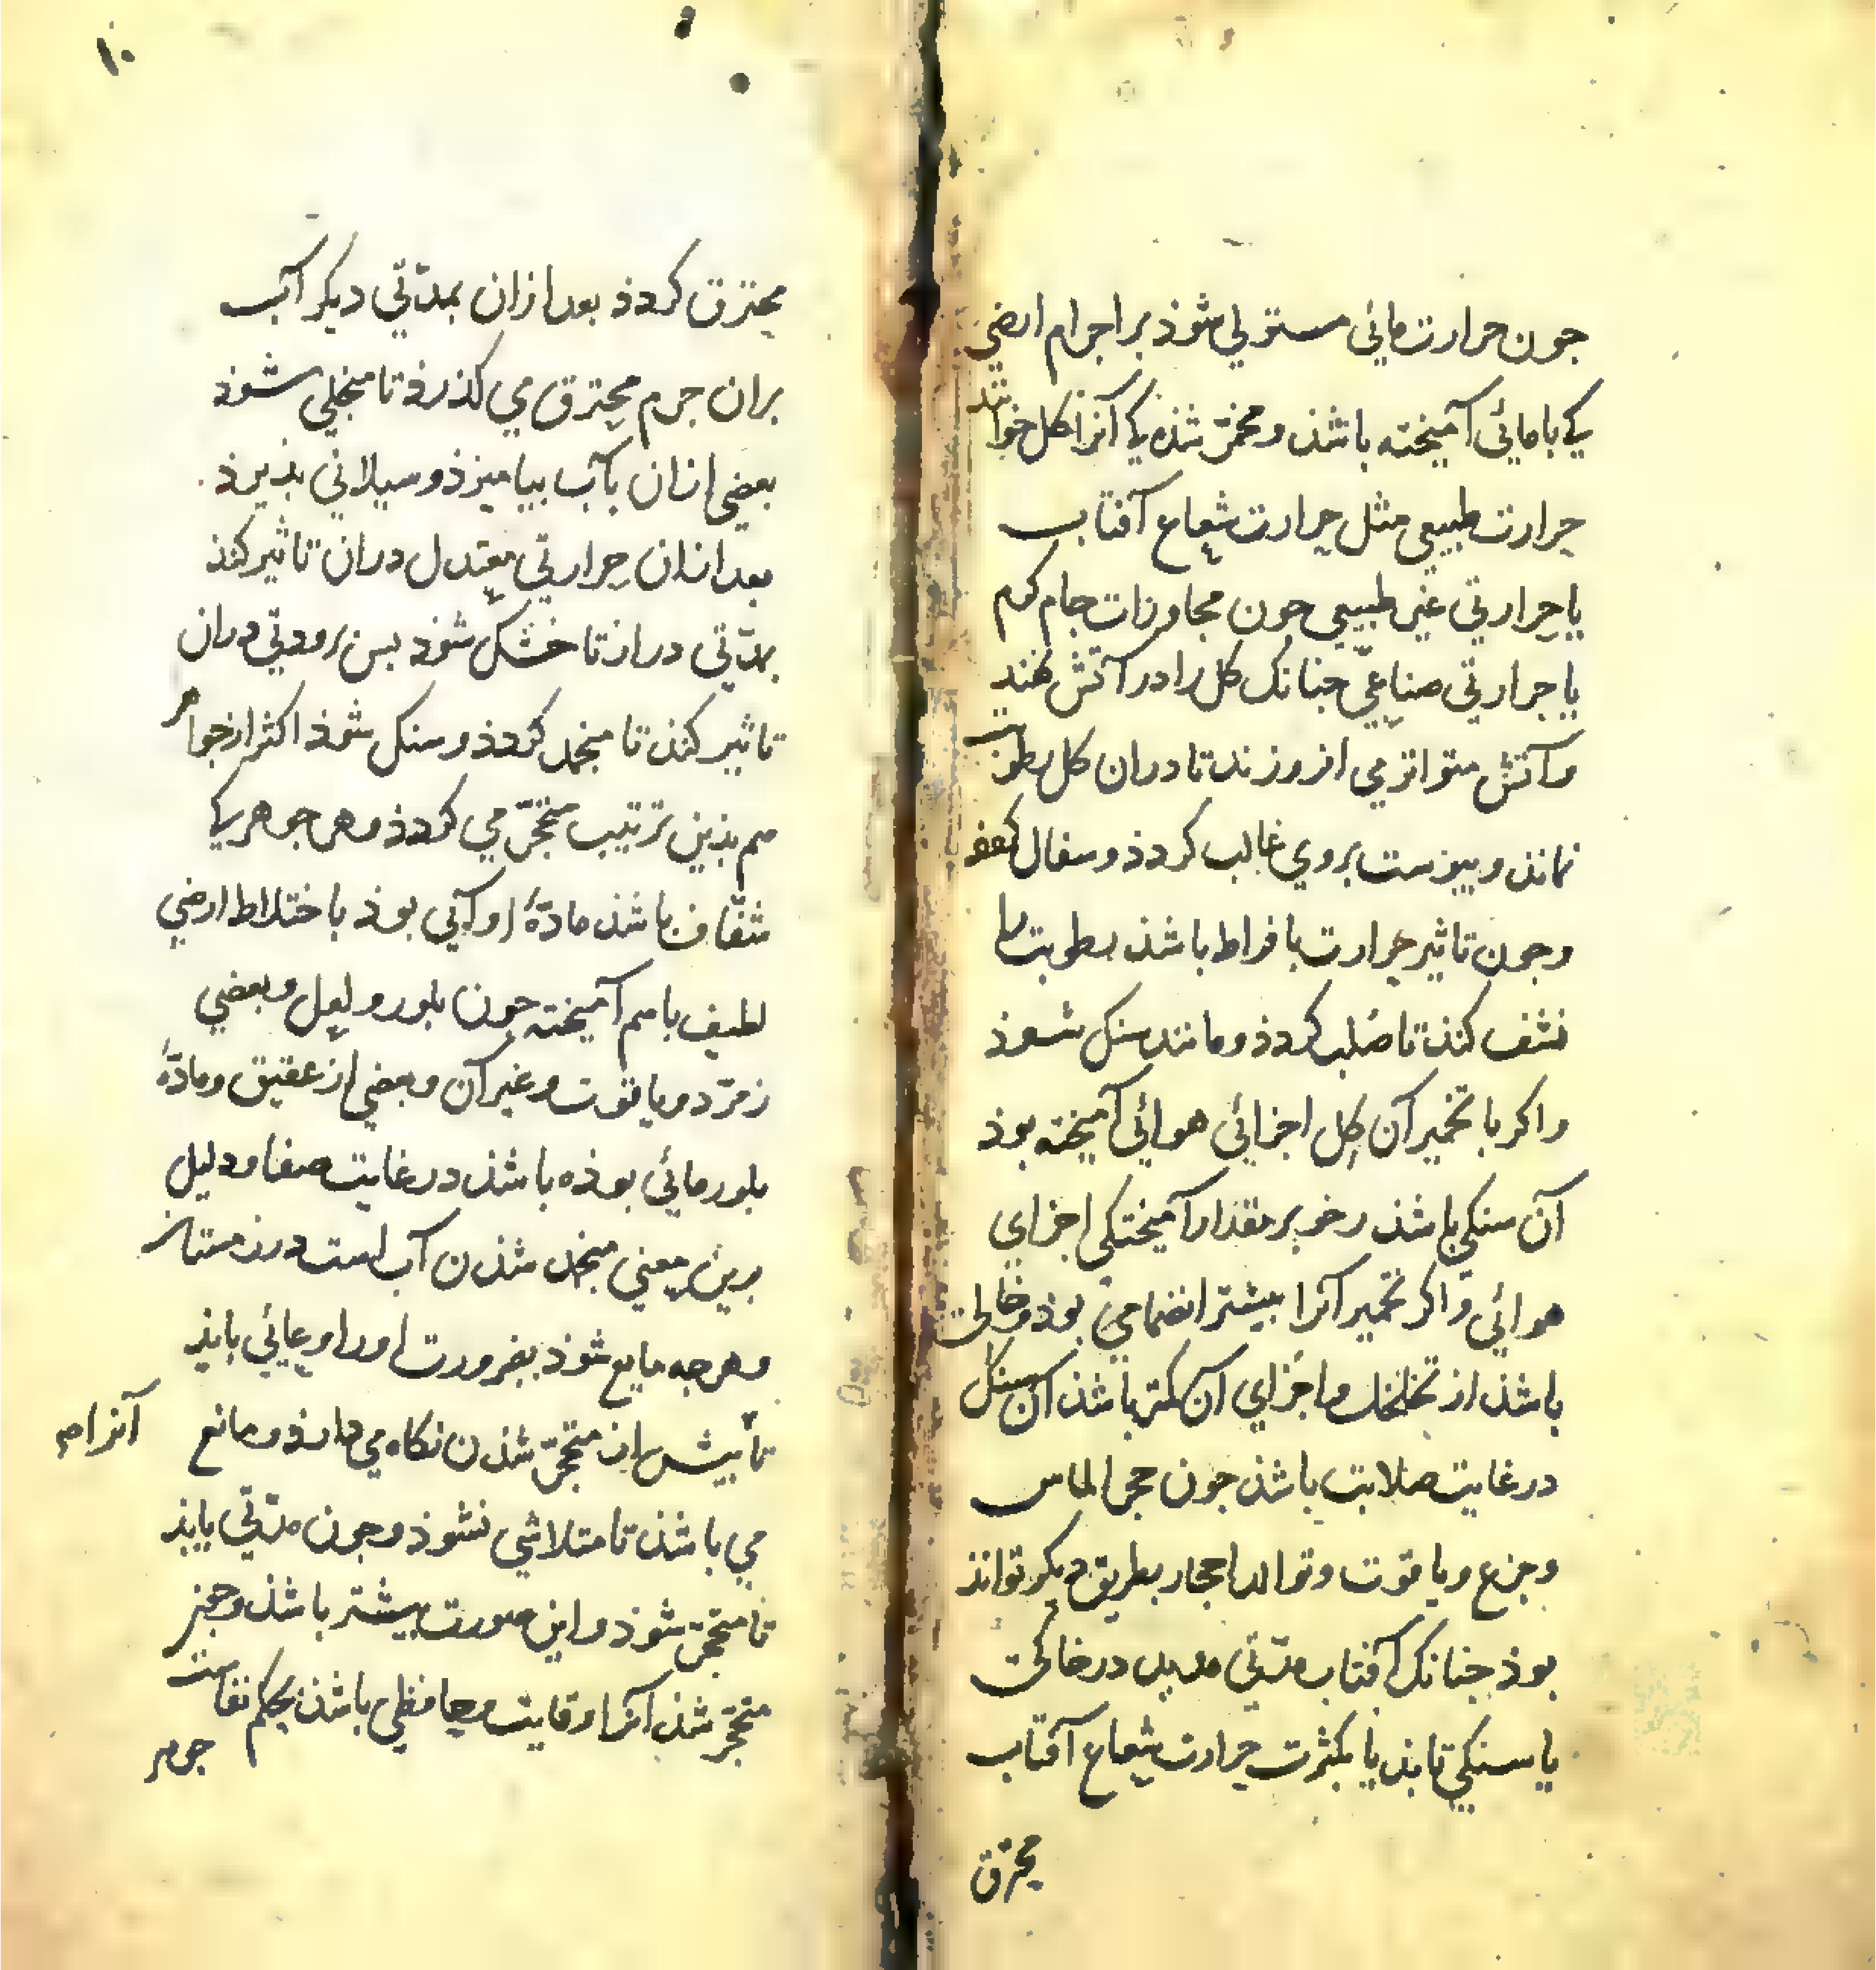 جون حرارت مائی مستولی شوذ بر اجرام ارضی
کی با مائی آمیخته باشذ و مخمّر شذه کی آنرا کل خوانند
حرارت طبیعی مثل حرارت شعاع آفتاب
یا حرارتی غیر طبیعی جون مجاورات جام کرم
یا حرارتی صناعیّ جنانک کل را در آتش نهند
و آتش متواتر می افروزند تا دران کل رطوبت
نماند و یبوست بر وی غالب کردذ و سفال
وجون تاثیر حرارت بافراط باشذ رطوبت را
نشف کنذ تا صُلب کردذ و مانند سنک شوذ
واکر با تخمیر آن کِل اجزائی هوائی آمیخته بوذ
آن سنکی باشذ رخو بر مقدار آمیختکی اجزای
هوائی و اکر تخمیر آنرا بیشتر انضمامی بوذ و خالی
باشذ از تخلخل و اجزای آن کمتر باشذ آن سنک
در غایت صلابت باشذ جون حجر الماس
وجزع ویاقوت وتوالد احجار بطریق دیکر تواند
بوذ جنانک آفتاب مدّتی مدید در خاکی
یا سنکی تابذ یا بکثرت حرارت شعاع آفتاب
محترق
۱۰
محترق کردذ بعد ازان بمدّتی دیکر آب
بران جرم محترق می کذرذ تا منحلّ شوذ
بعضی ازان بآب بیامیزذ و سیلانی بذیرذ
بعد ازان حرارتی معتدل دران تاثیر کنذ
بمدّتی دراز تا خشک شوذ بس برودتی دران
تاثیر کنذ تا منجمد کردذ و سنک شوذ اکثر از جواهر
هم بذین ترتیب متحجّر می کردذ و هر جوهر کی
شفّاف باشذ مادّهٔ او آبی بوذ با اختلاط ارضی
لطیف باهم آمیخته جون بلور و لعل و بعضی
زمرّد و یاقوت و غیر آن و بعضی از عقیق و مادّهٔ
بلور مائی بوذه باشذ در غایت صفا و دلیل
برین معنی منجمد شذن آب است در زمستان
وهرجه مایع شوذ بضرورت اورا وعائی بایذ
تا بیش از متحجّر شذن نکاه می دارذ و مانع
آنرا
می باشذ تا متلاشی نشوذ وجون مدّتی بایذ
تا متحجّر شوذ و این صورت بیشتر باشذ وجیز
متحجّر شذ آنرا وقایت و محافظی باشذ بحکم نفاست
جوهر